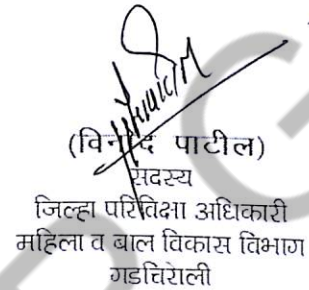 (विनोद पाटील)
सदस्य
जिल्हा परिविक्षा अधिकारी
महिला व बाल विकास विभाग
गडचिरोली